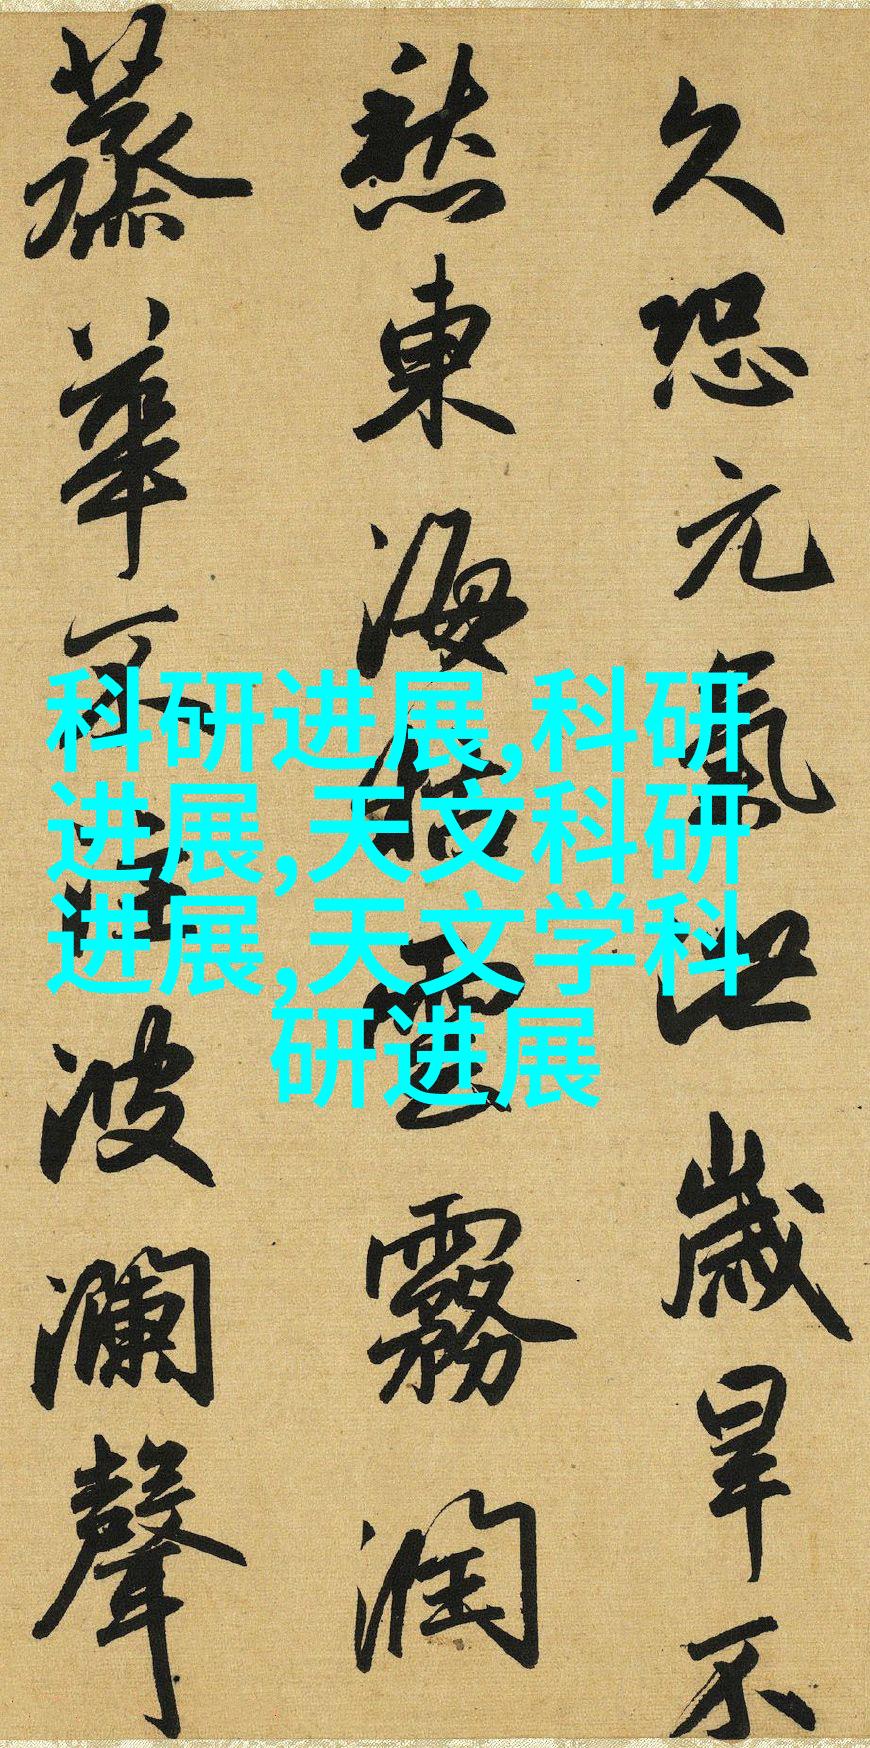 久恐元氣泄歲旱不
愁東海枯雲霧潤
蒸華不注波瀾聲
科研进展,科研
进展,天文科研
进展,天文学科
研进展